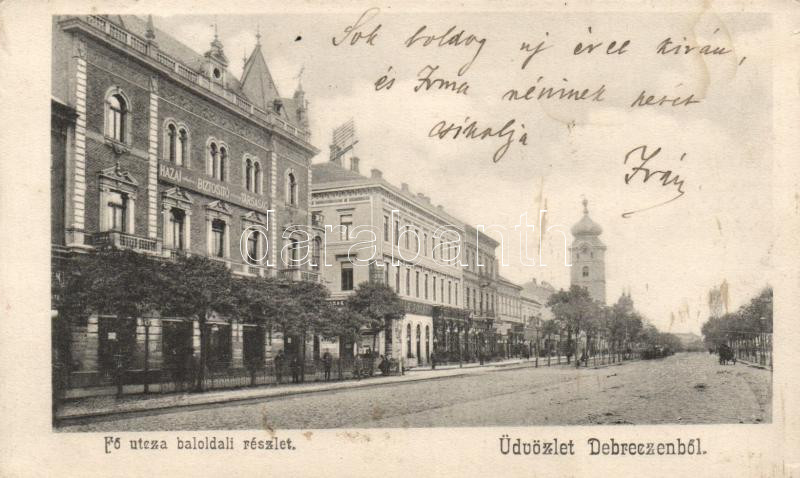 Sok boldog új évet kíván,
és Irma néninek kezét
csókolja
Iván
HAZAI BIZTOSÍTÓ TÁRSASÁG
darabanth
Fő utcza baloldali részlet.
Üdvözlet Debreczenből.